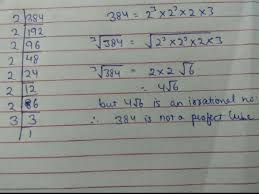 2 | 384
2 | 192
2 | 96
2 | 48
2 | 24
2 | 12
2 | 6
3 | 3
1
384 = 2³ × 2³ × 2 × 3
³√384 = √2³ × 2³ × 2 × 3
³√384 = 2 × 2 √6
= 4√6
but 4√6 is an irrational no.
∴ 384 is not a perfect cube